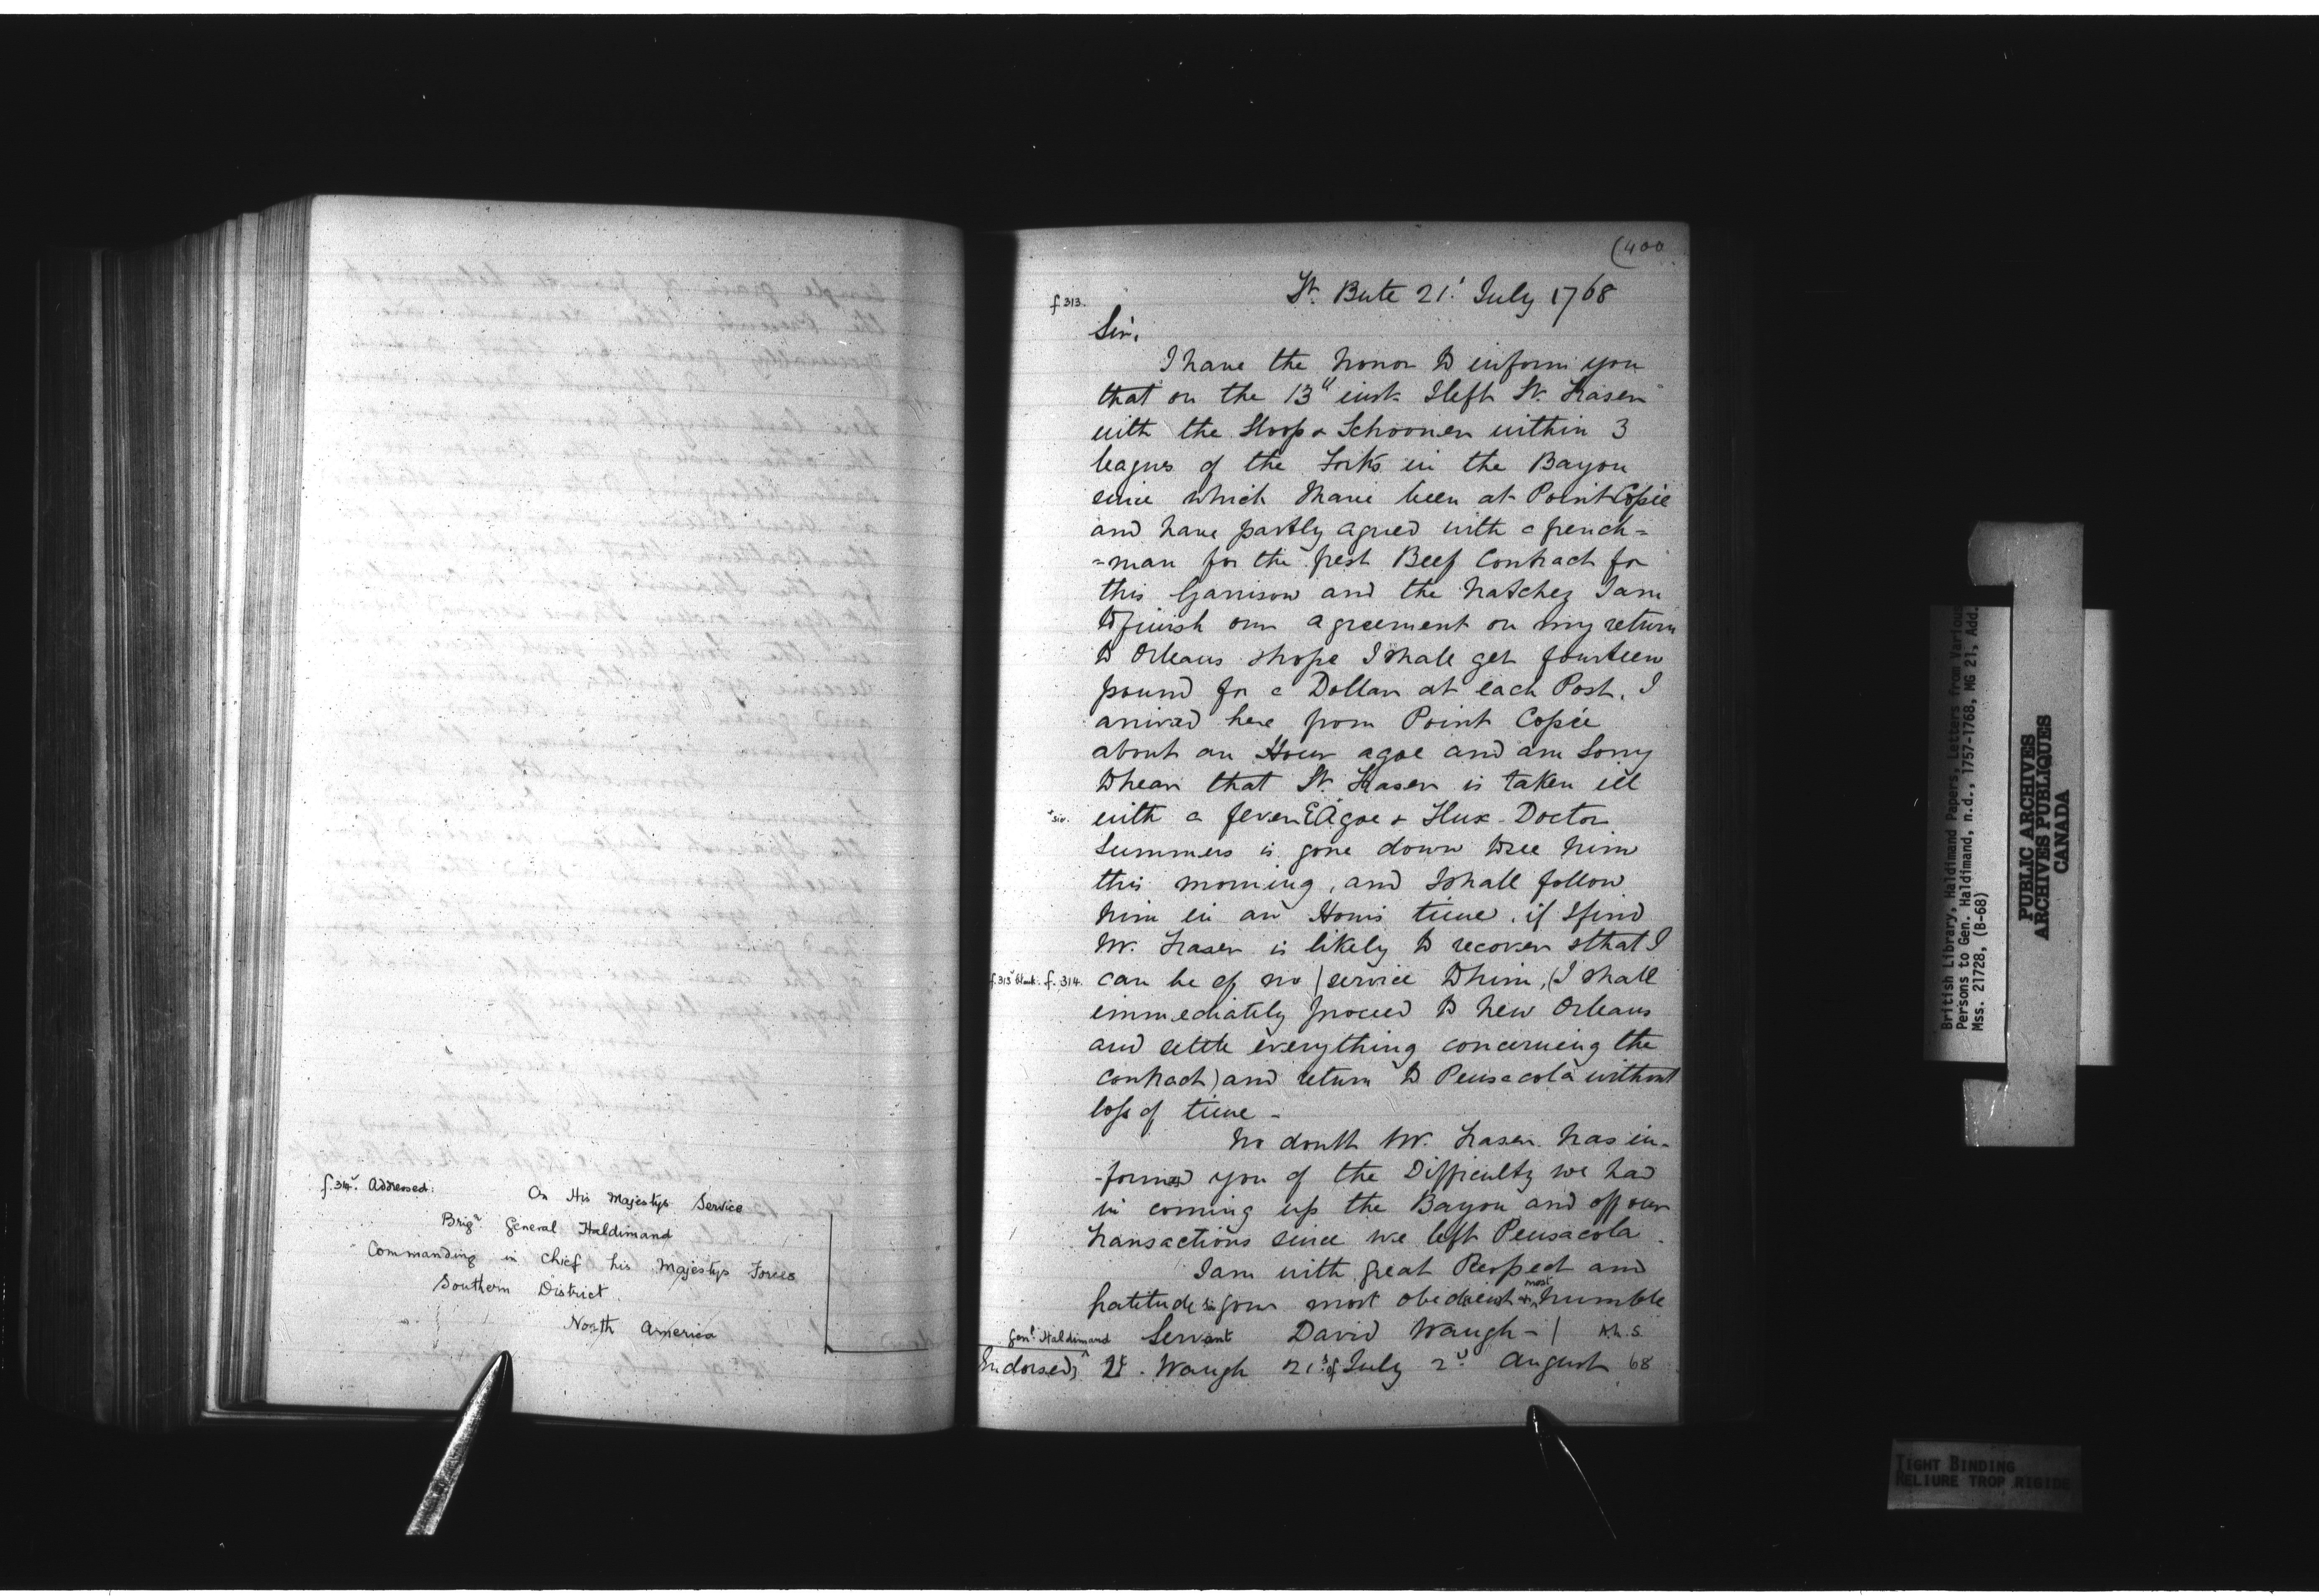 f. 314v. Addressed:
On His Majestys Service
Brigr. General Haldimand
Commanding in Chief his Majestys Forces
Southern District
North America
(400
f 313.
Ft. Bute 21.t July 1768
Sir,
I have the honor to inform you
that on the 13th inst. I left Lt. Fraser
with the Sloop & Schooner within 3
leagues of the Forks in the Bayou
since which I have been at Point Copée
and have partly agreed with a french=
=man for the fresh Beef Contract for
this Garrison and the Natchez I am
to finish our agreement on my return
to Orleans & hope I shall get fourteen
pound for a Dollar at each Post. I
arrived here from Point Copée
about an Hour agoe and am Sorry
to hear that Lt. Fraser is taken ill
sic. with a fever & Agoe & Flux - Doctor
Summers is gone down to see him
this morning, and I shall follow
him in an Hours time. if I find
Mr. Fraser is likely to recover & that I
f. 313v blank. f. 314. can be of no / service to him, (I shall
immediately proceed to New Orleans
and settle everything concerning the
contract) and return to Pensacola without
loss of time -
No doubt Mr. Fraser has in-
-formed you of the Difficulty we had
in coming up the Bayou and off our
transactions since we left Pensacola.
I am with great Respect and
Gratitude Sir your most obedient & most humble
Genl. Haldimand Servant David Waugh - / A.L.S.
Endorsed, Lt. Waugh 21st of July 2d August 68
British Library, Haldimand Papers, Letters from Various
Persons to Gen. Haldimand, n.d., 1757-1768, MG 21, Add.
Mss. 21728, (B-68)
PUBLIC ARCHIVES
ARCHIVES PUBLIQUES
CANADA
TIGHT BINDING
RELIURE TROP RIGIDE